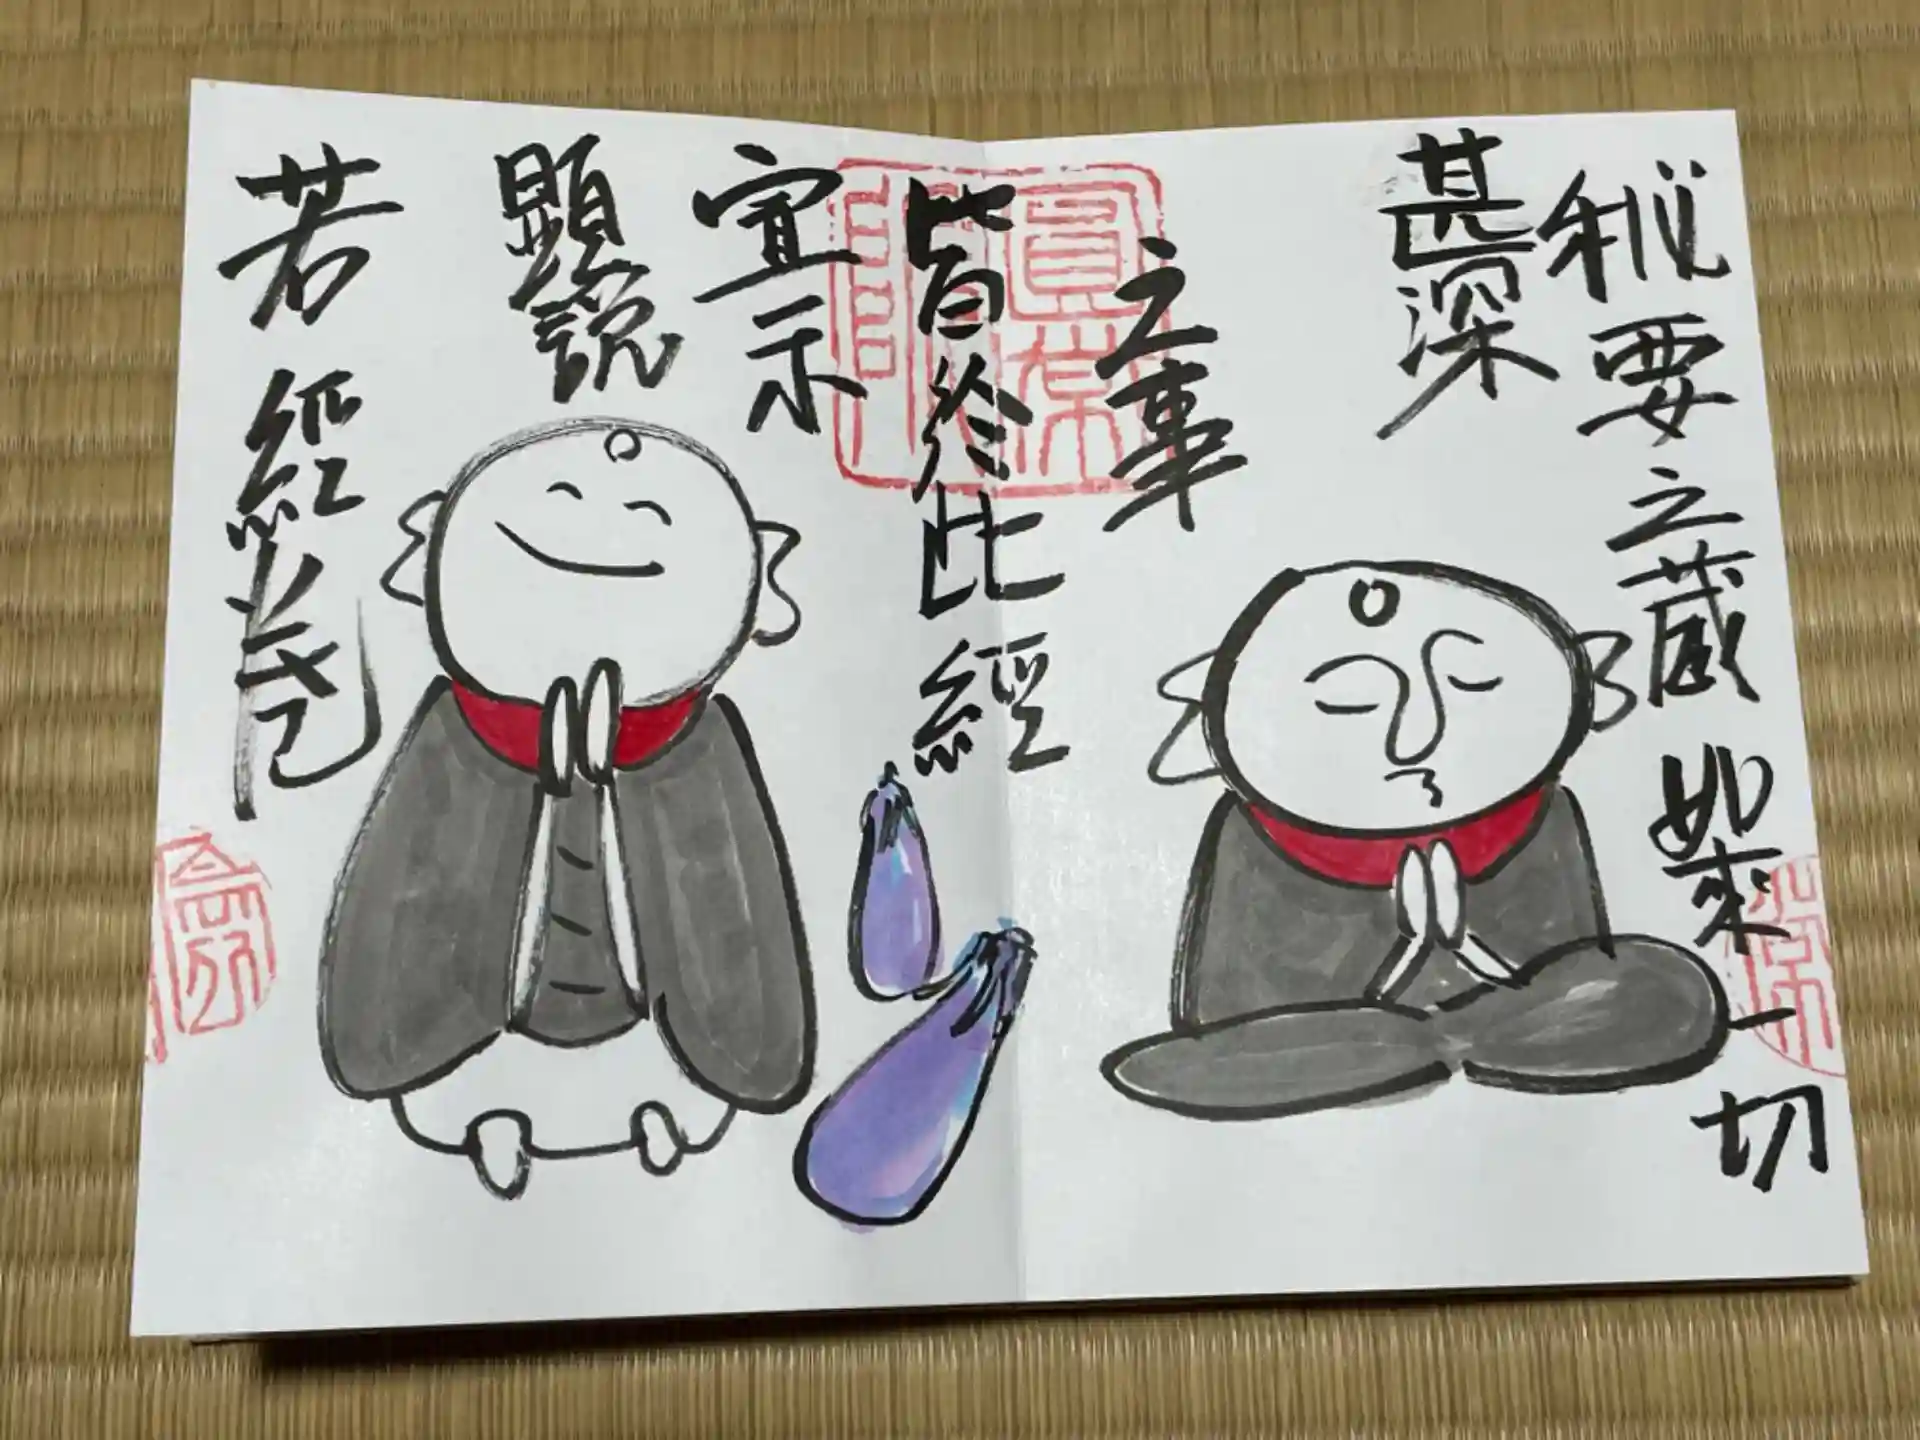 秘要之蔵如来一切
甚深
之事
皆於此經
宣示
顕説
若經巻